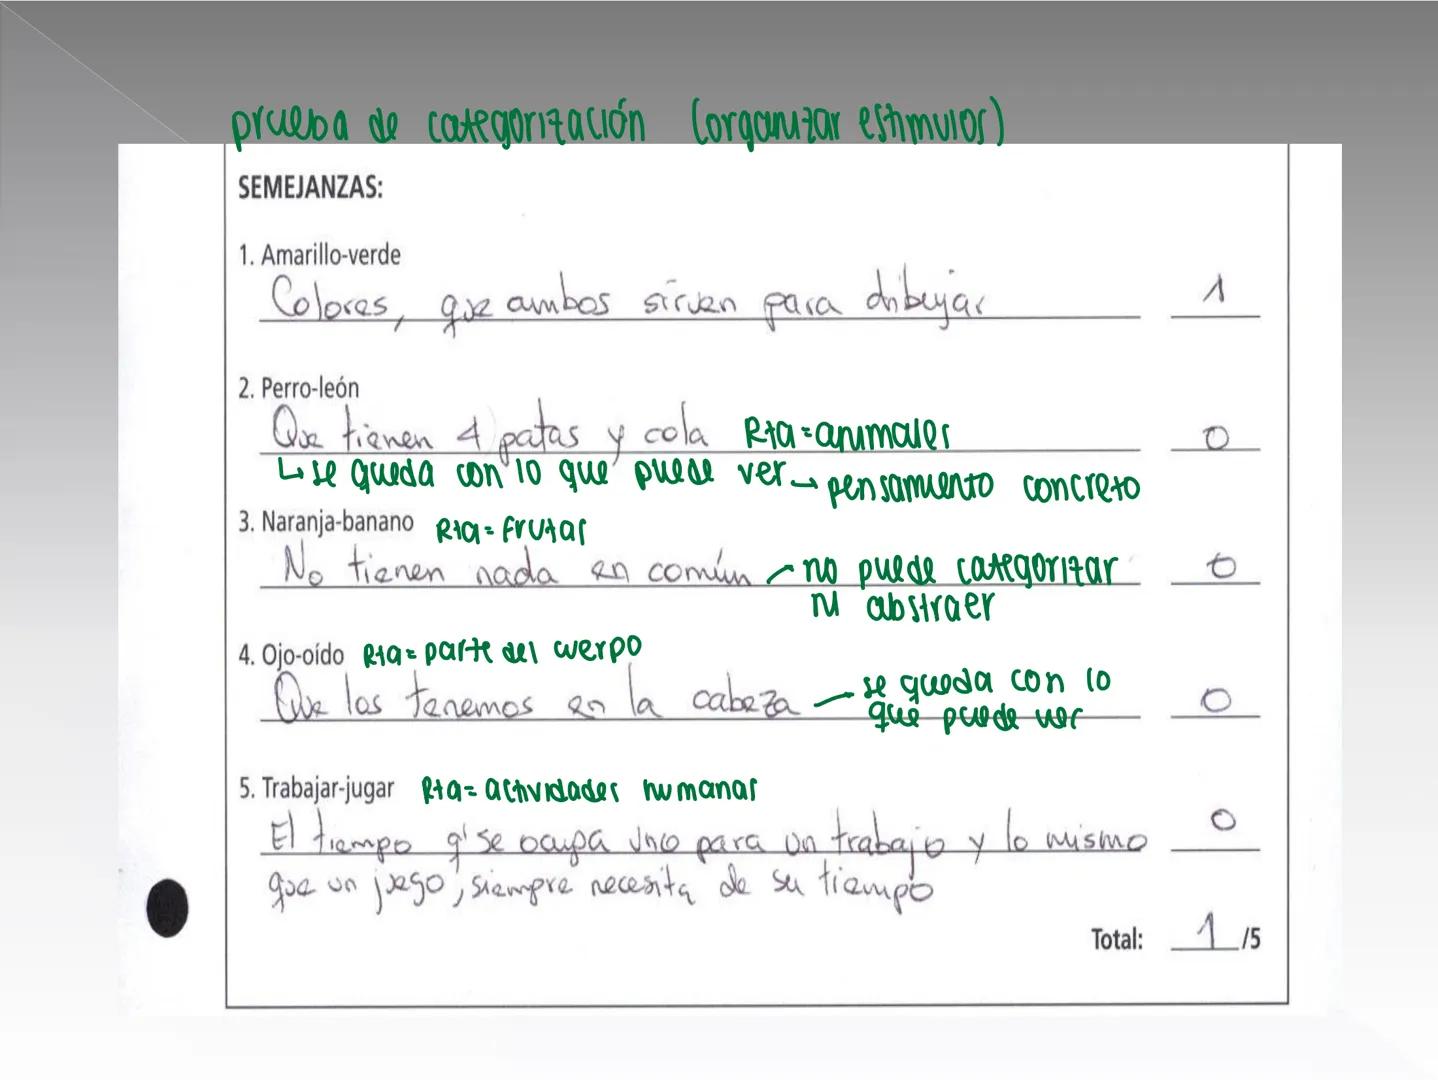 prueba de categorización (organizar estimulos)
SEMEJANZAS:
1. Amarillo-verde
Colores, que ambos sirven para dibujar 1
2. Perro-león
Que tienen 4 patas y cola Rta=animales 0
↳ se queda con lo que puede ver → pensamiento concreto
3. Naranja-banano Rta= frutas
No tienen nada en común - no puede categorizar 0
ni abstraer
4. Ojo-oído Rta= parte del cuerpo
Que las tenemos en la cabeza - se queda con lo 0
que puede ver
5. Trabajar-jugar Rta= actividades humanas
El tiempo q' se ocupa uno para un trabajo y lo mismo 0
que un juego, siempre necesita de su tiempo
Total: 1 /5